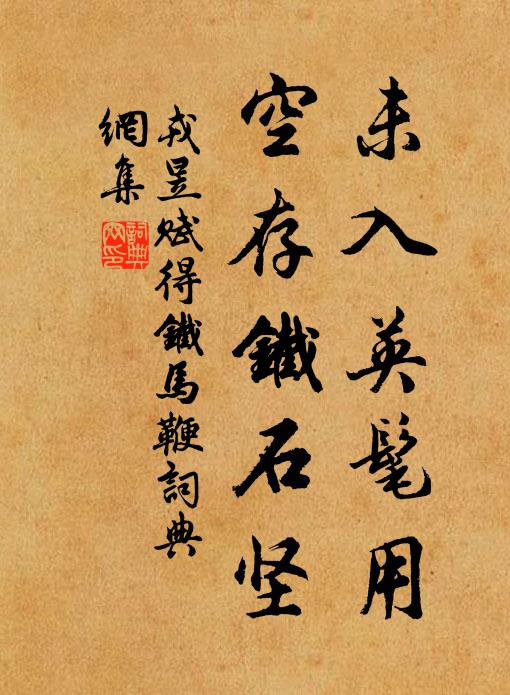 未入英髦用
空存鐵石坚
戎昱赋得鐵馬鞭詞典
網集
詞典
网印